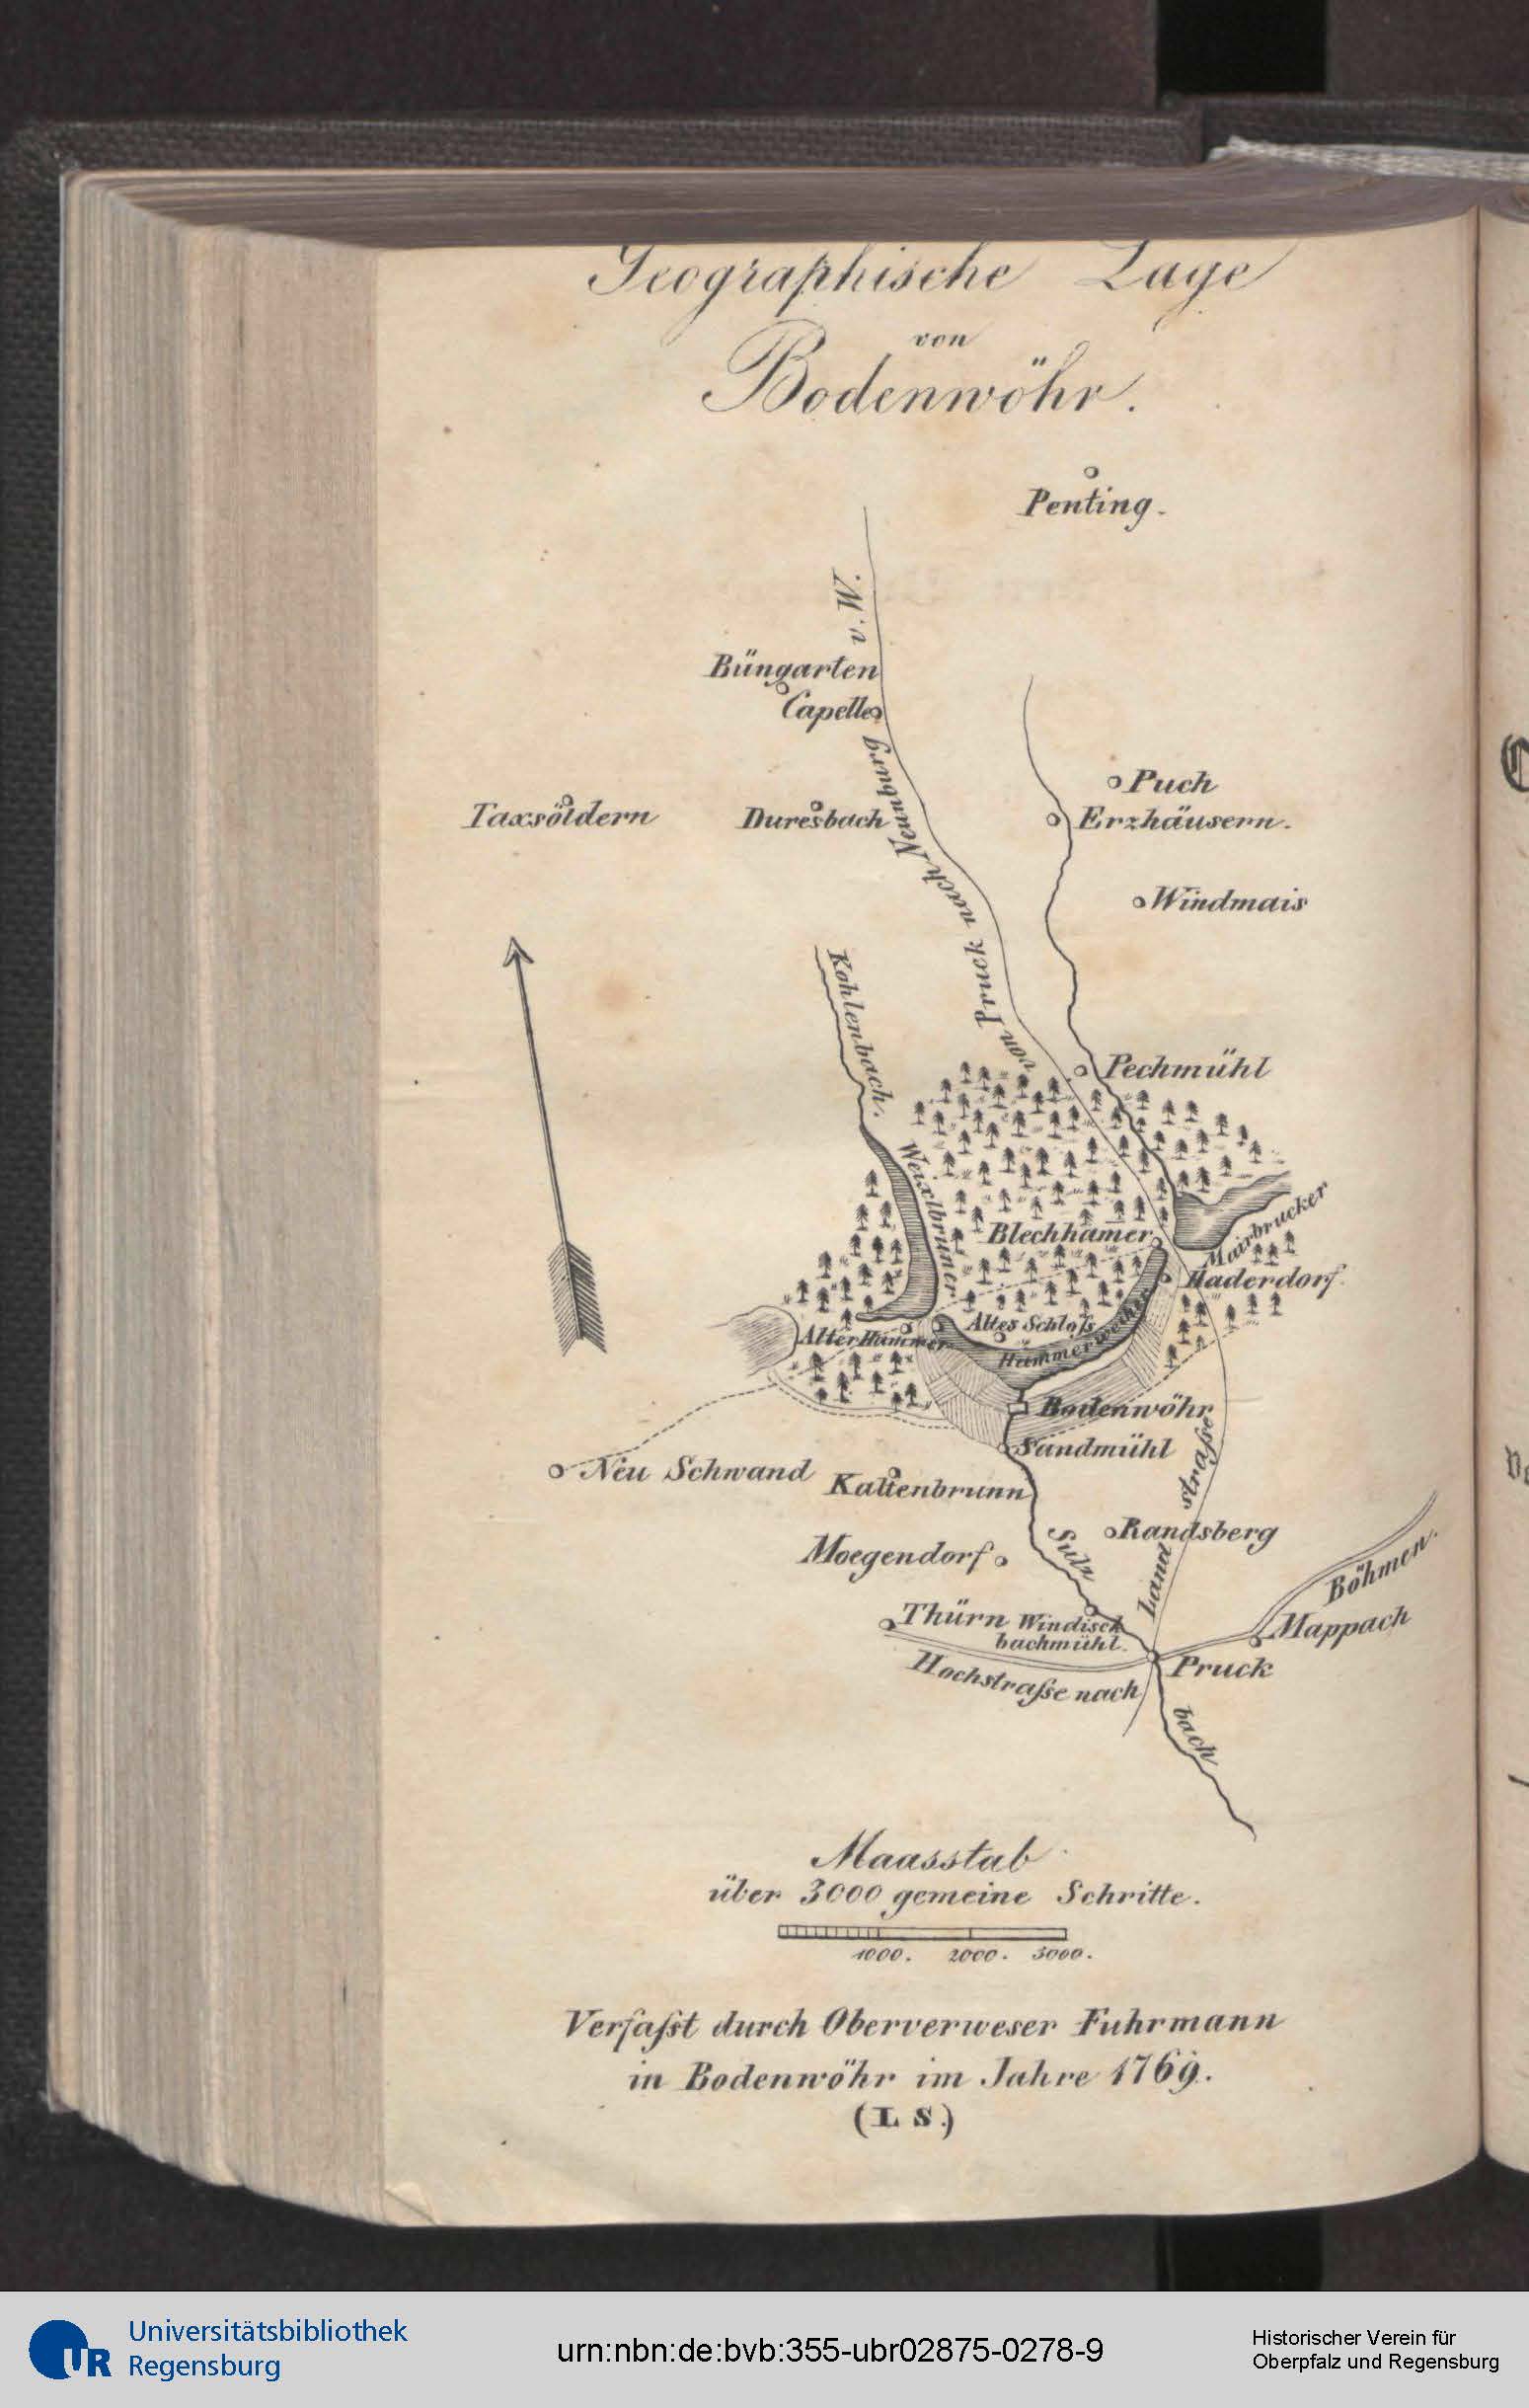 Geographische Lage
von
Bodenwöhr.
Penting.
von Pruck nach Neunburg v. W.
Büngarten
Capelle
Puch
Taxsöldern
Duresbach
Erzhäusern.
Windmais
Kohlenbach.
Pechmühl
Weixlbruner
Blechhamer
Mairbrucker
Haderdorf
Altes Schloſs
Alter Hammer
Hammerweiher
Bodenwöhr
Sandmühl
Neu Schwand
Kaltenbrunn
Land straſse
Randsberg
Moegendorf
Sulz bach
Böhmen.
Thürn
Windisch
bachmühl.
Mappach
Hochstraſse nach
Pruck
Maasstab
über 3000 gemeine Schritte.
1000. 2000. 3000.
Verfaſst durch Oberverweser Fuhrmann
in Bodenwöhr im Jahre 1769.
(L S.)
UR Universitätsbibliothek
Regensburg
urn:nbn:de:bvb:355-ubr02875-0278-9
Historischer Verein für
Oberpfalz und Regensburg